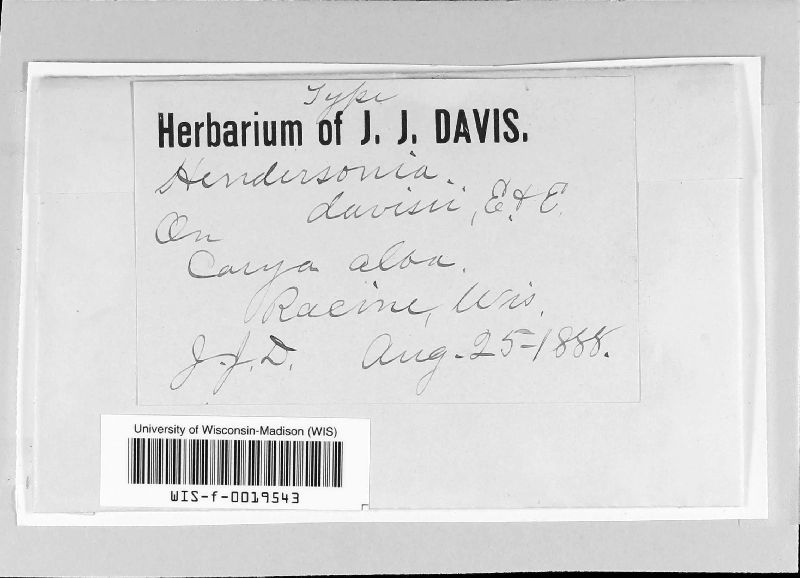 Type
Herbarium of J. J. DAVIS.
Hendersonia
davisii, E. & E.
On
Carya alba.
Racine, Wis.
J. J. D. Aug. 25-1888.
University of Wisconsin-Madison (WIS)
WIS-f-0019543